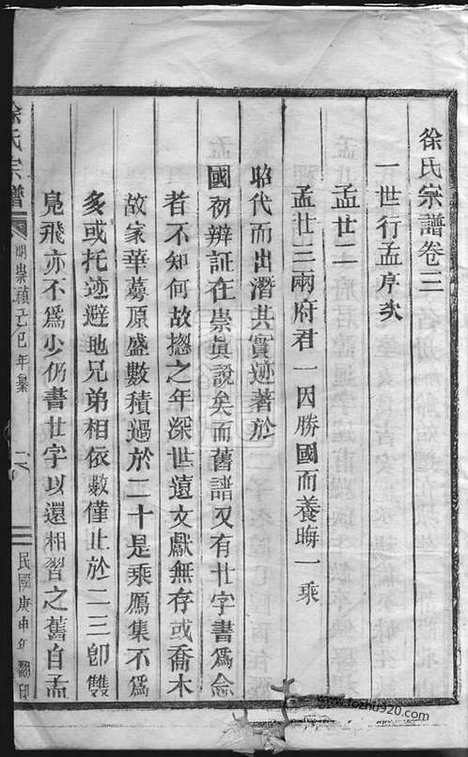 徐氏宗譜卷三
一世行孟序矣
孟廿二
孟廿三兩府君一因勝國而養晦一乘
昭代而出潛其實迹著於
國初辨証在崇眞說矣而舊譜又有廿字書爲念
者不知何故揔之年深世遠文獻無存或喬木
故家華蕚原盛數積過於二十是乘鴈集不爲
多或托迹避地兄弟相依數僅止於二三卽雙
鳧飛亦不爲少仍書廿字以還相習之舊自孟
徐氏宗譜
明崇禎己巳年纂
民國庚申年
www.tozhu920.com